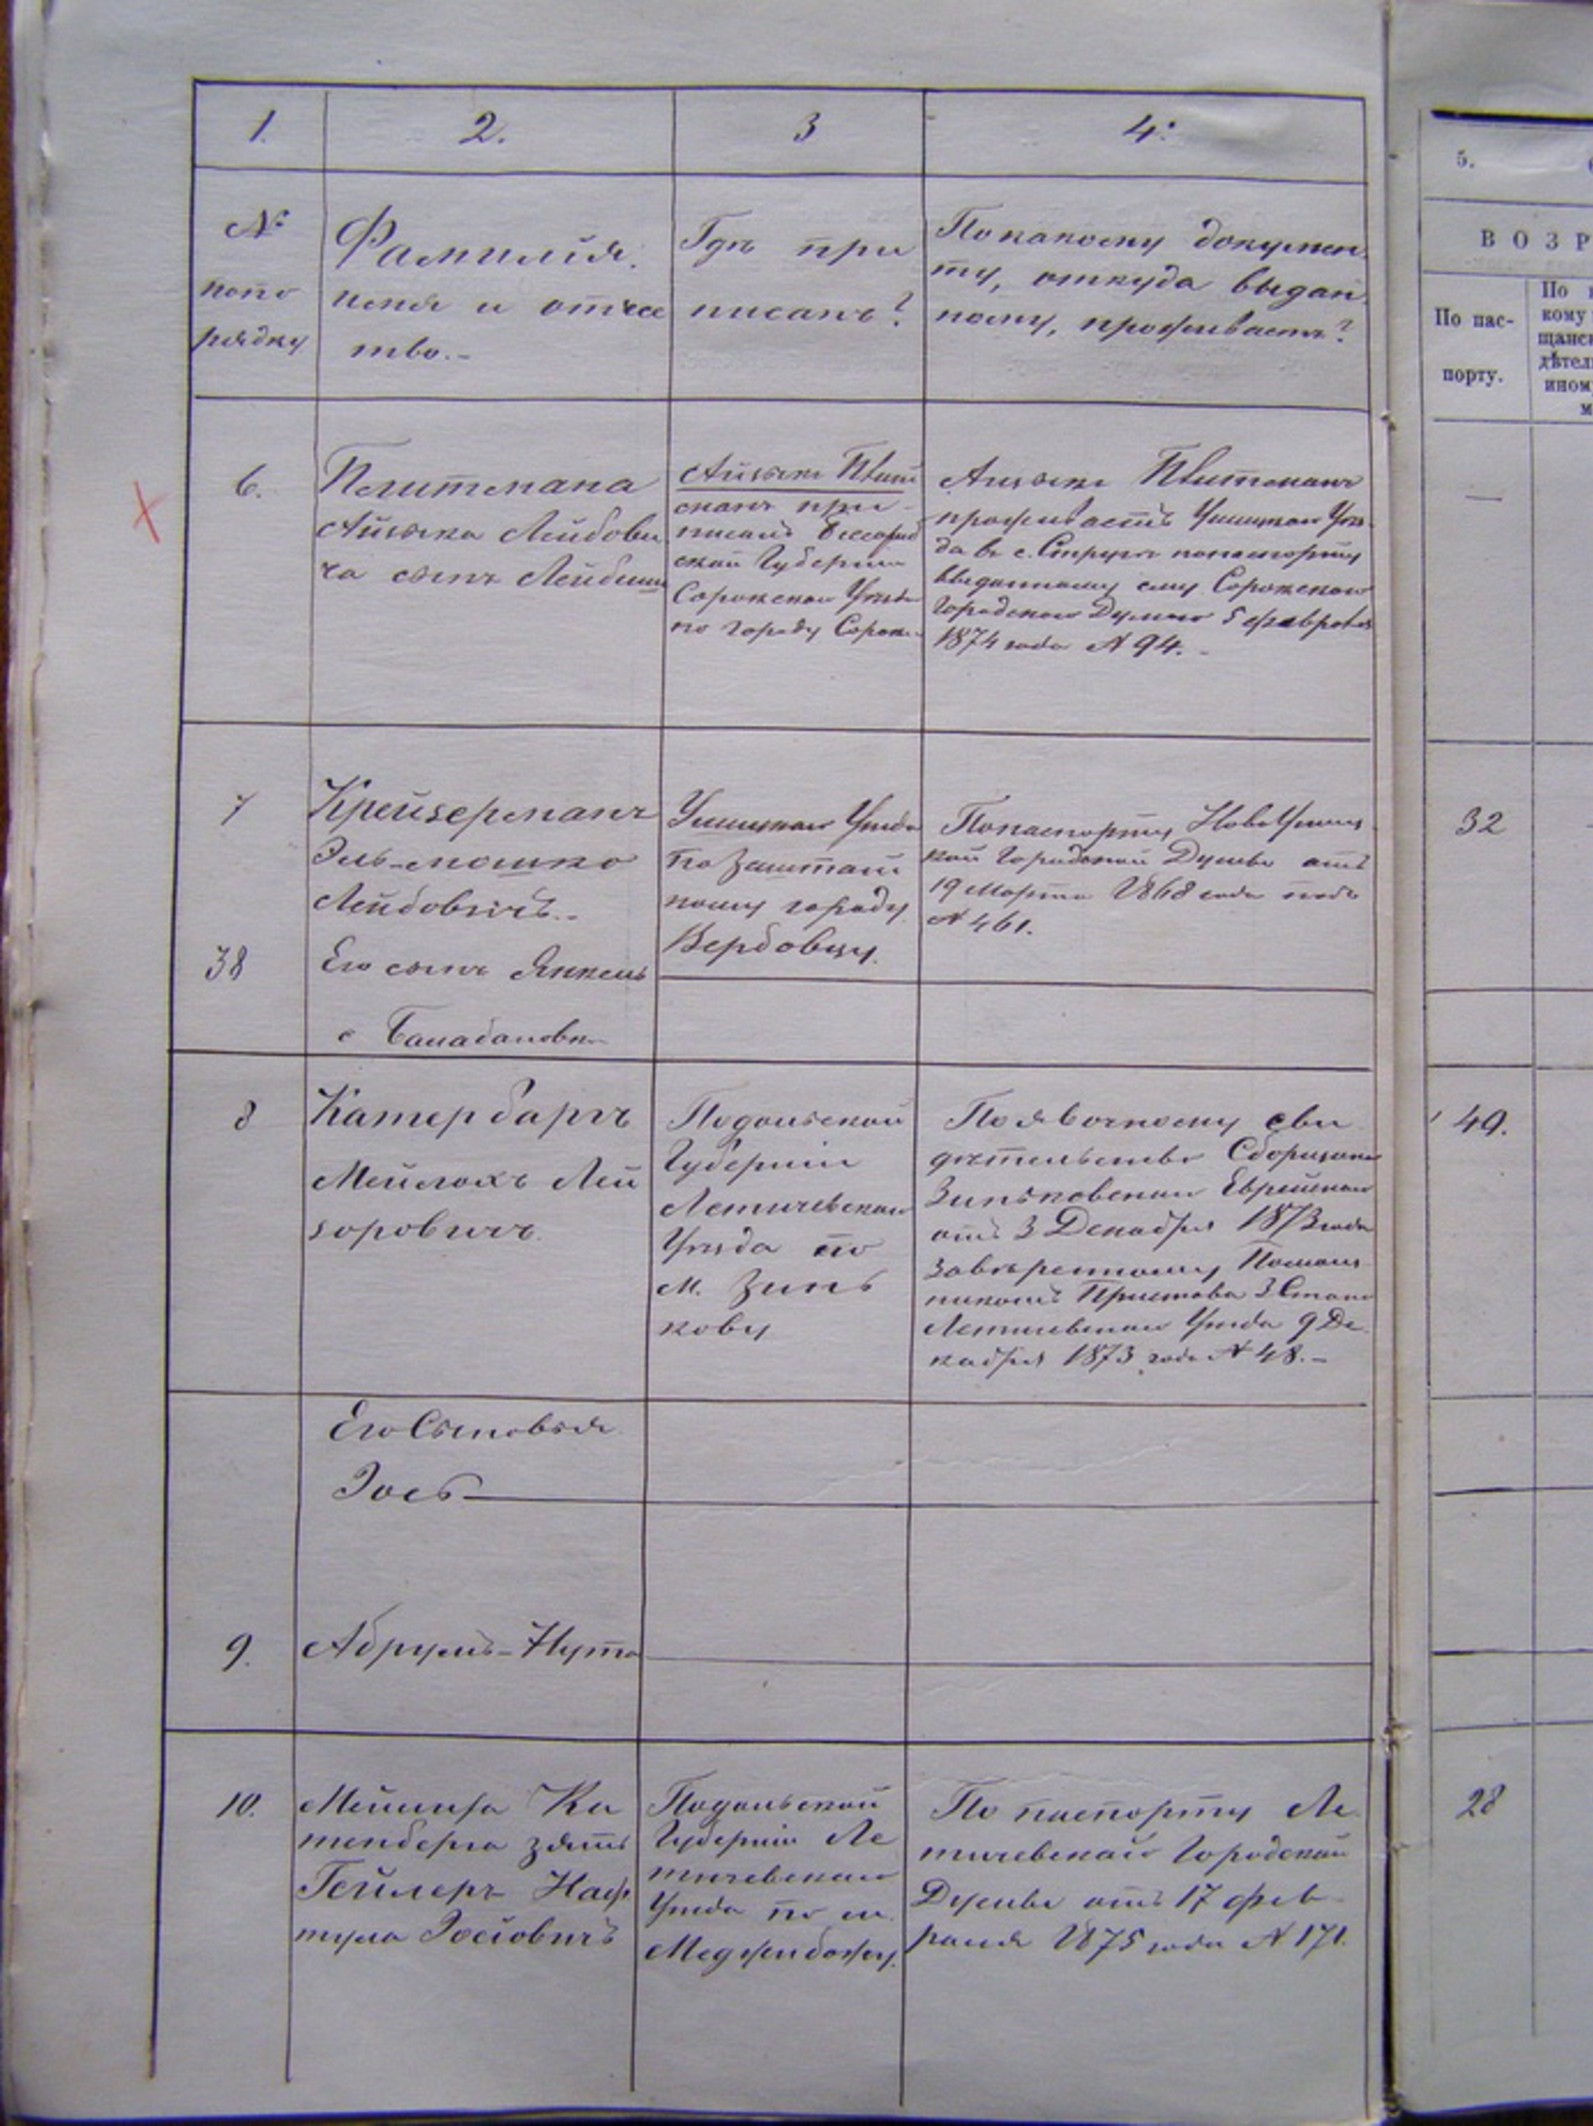 1.
2.
3
4.
№
попо
рядку
Фамилія,
имя и отчес
тво.-
Гдѣ при
писанъ?
По какому докумен
ту, откуда выдан
ному, проживаетъ?
6.
Айзыка Лейбови
ча сынъ Лейбиш
сканъ при-
писанъ Бессараб
ской Губерніи
Сорокскаго Уѣзда
по городу Сороки
проживаетъ Ушицкаго Уѣз
да въ с. Струга попаспорту
выданному ему Сорокскою
Городскою Думою 5 февраля
1874 года № 94.-
7
Крейзерманъ
Эль-мошко
Лейбовичъ.-
Ушицкаго Уѣзда
по Заштат
ному городу
Вербовцу.
Попаспорту НовоУшиц
кой Городской Думы отъ
19 Марта 1868 года подъ
№ 461.
38
Его сынъ Янкель
с Балабановка
8
Катербаргъ
Мейлохъ Лей
зоровичъ
Подольской
Губерніи
Летичевскаго
Уѣзда по
м. Зинь
кову
По явочному сви
дѣтельству Сборщика
Зиньковскаго Еврейскаго
отъ 3 Декабря 1873 года
завѣренному Помощ
никомъ Пристава 3 Стана
Летичевскаго Уѣзда 9 Де
кабря 1873 года № 48.-
Его Сыновья
Іось
9.
Абрумъ-Нута
10.
зять
Гейлеръ Наф
тула Іосіовичъ
Подольской
Губерніи Ле
тичевскаго
Уѣзда по м.
Меджибожу.
По паспорту Ле
тичевской Городской
Думы отъ 17 фев
раля 1875 года № 171.
5.
ВОЗР
По пас-
порту.
По
кому
щанск
дѣтел
ином
м
—
32
49.
28